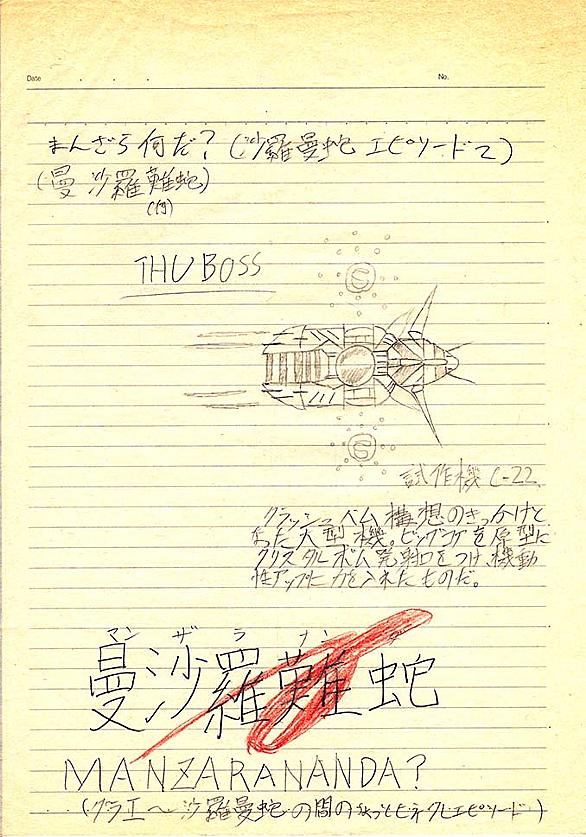 Date
No.
まんざら何だ?(沙羅曼蛇 エピソード2)
(曼沙羅難蛇)
(何)
THU BOSS
試作機 C-22.
クラッシュベム構想のきっかけと
なった大型機。ビッグコアを原型に
クリスタルボム発射口をつけ、機動
性アップに力を入れたものだ。
マン ザ ラ ナン ダ
曼沙羅難蛇
MANZARANANDA?
(グラエ〜沙羅曼蛇の間のちょっとヒネクレエピソード)